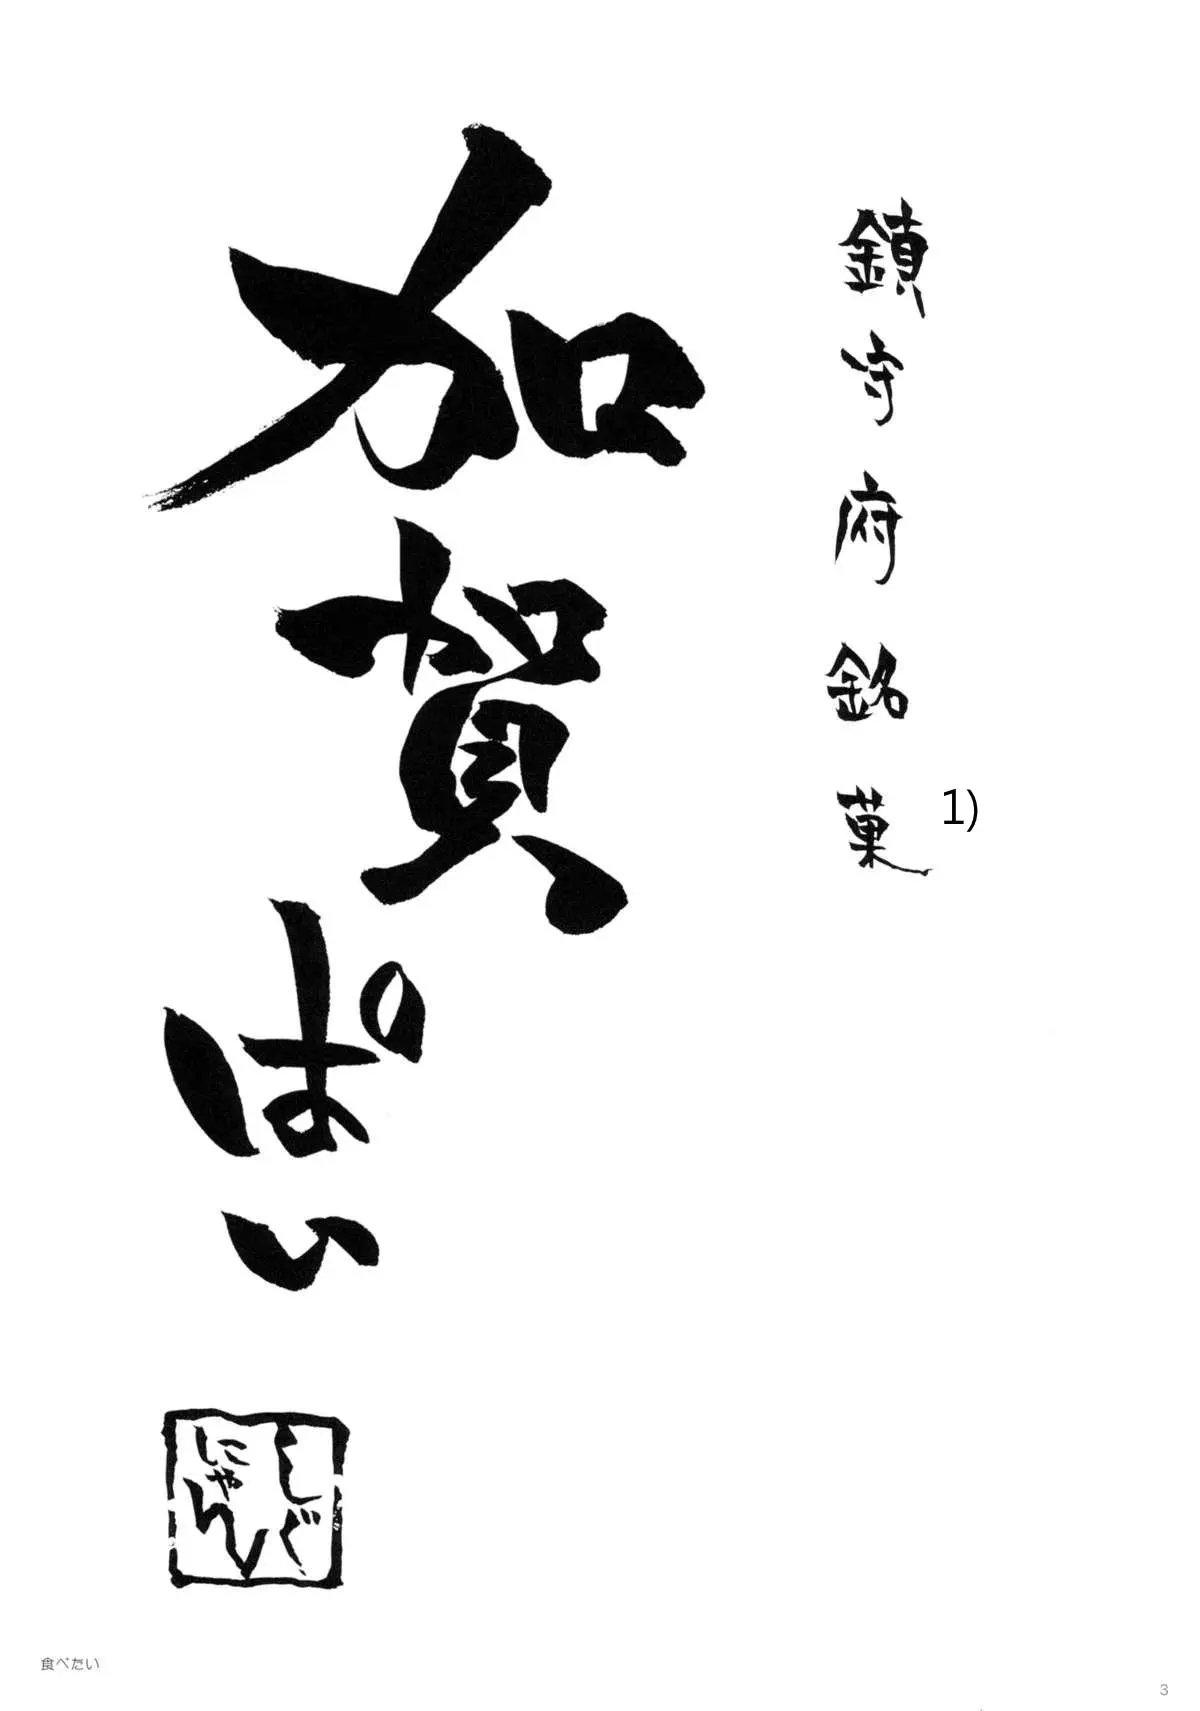 鎮守府銘菓
1)
加賀ぱい
しぐ
にゃん
食べたい
3